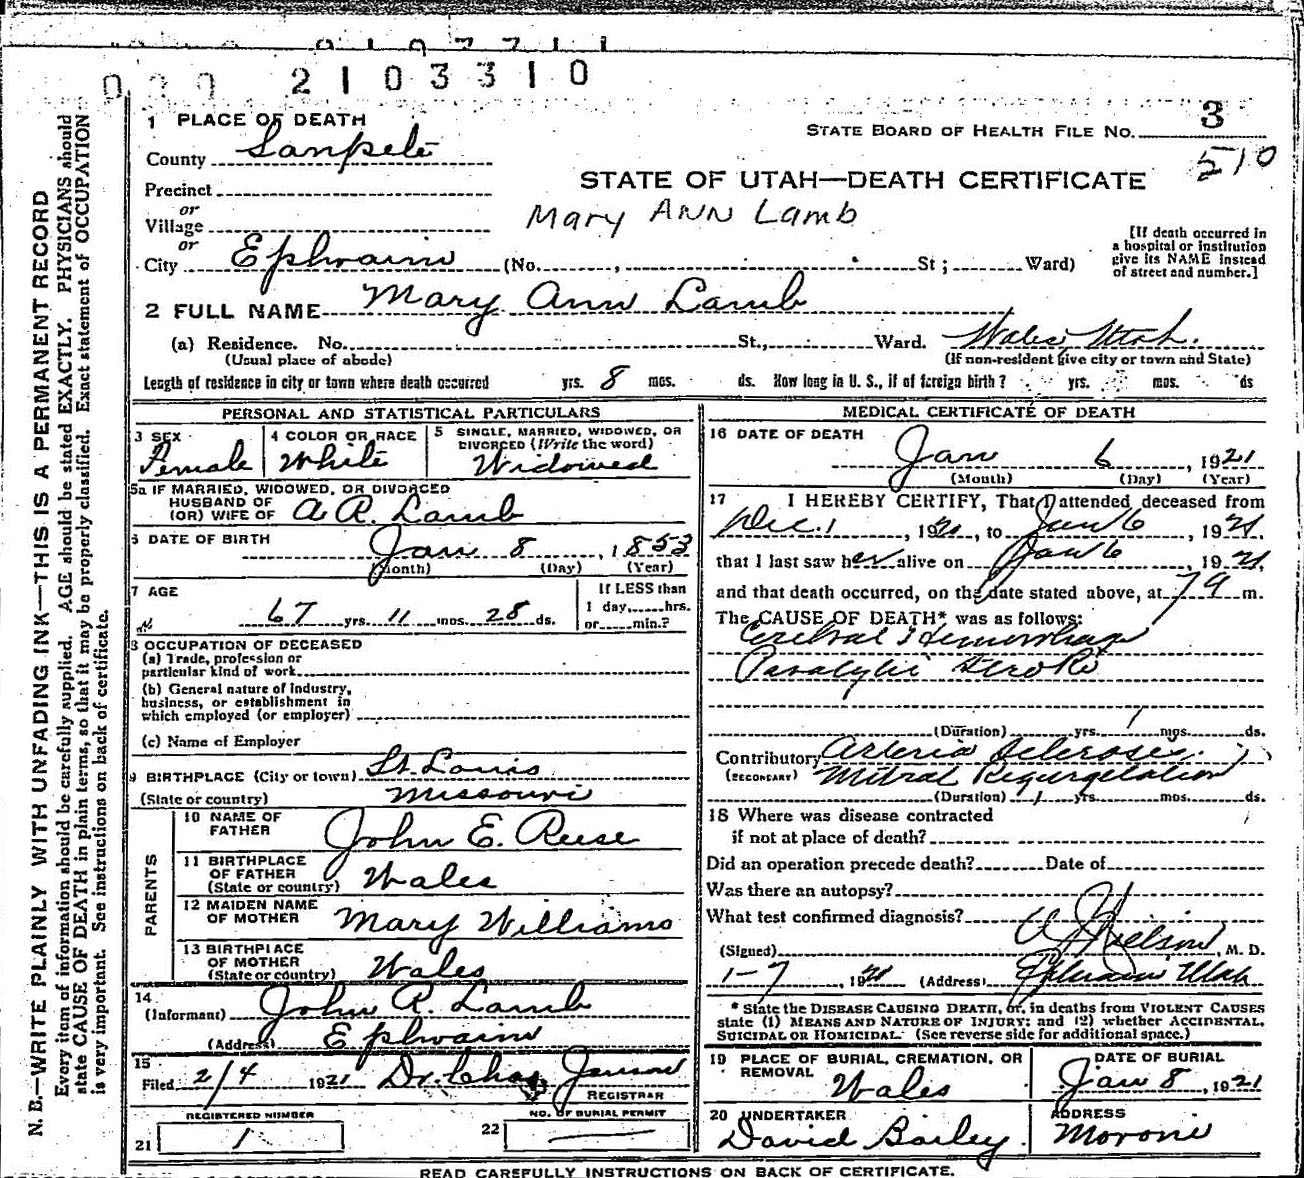 2103310
1 PLACE OF DEATH
STATE BOARD OF HEALTH FILE No. 3
County Sanpete
510
Precinct
STATE OF UTAH—DEATH CERTIFICATE
or
Village
Mary ANN Lamb
or
City Ephraim (No. , St ; Ward)
[If death occurred in
a hospital or institution
give its NAME instead
of street and number.]
2 FULL NAME Mary Ann Lamb
(a) Residence. No. St., Ward. Wales Utah.
(Usual place of abode) (If non-resident give city or town and State)
Length of residence in city or town where death occurred yrs. 8 mos. ds. How long in U. S., if of foreign birth? yrs. mos. ds
PERSONAL AND STATISTICAL PARTICULARS
3 SEX
Female
4 COLOR OR RACE
White
5 SINGLE, MARRIED, WIDOWED, OR
DIVORCED (Write the word)
Widowed
5a IF MARRIED, WIDOWED, OR DIVORCED
HUSBAND OF
(OR) WIFE OF A R. Lamb
6 DATE OF BIRTH
Jan 8, 1853
(Month) (Day) (Year)
7 AGE
67 yrs. 11 mos. 28 ds.
If LESS than
1 day,.....hrs.
or.....min.?
8 OCCUPATION OF DECEASED
(a) Trade, profession or
particular kind of work
(b) General nature of industry,
business, or establishment in
which employed (or employer)
(c) Name of Employer
9 BIRTHPLACE (City or town) St. Louis
(State or country) Missouri
PARENTS
10 NAME OF
FATHER John E. Reese
11 BIRTHPLACE
OF FATHER
(State or country) Wales
12 MAIDEN NAME
OF MOTHER Mary Williams
13 BIRTHPLACE
OF MOTHER
(State or country) Wales
14
(Informant) John R. Lamb
(Address) Ephraim
15
Filed 2/4 1921 Dr. Chas
REGISTRAR
REGISTERED NUMBER
21 1
NO. OF BURIAL PERMIT
22
MEDICAL CERTIFICATE OF DEATH
16 DATE OF DEATH
Jan 6, 1921
(Month) (Day) (Year)
17 I HEREBY CERTIFY, That I attended deceased from
Dec. 1, 1920, to Jan 6, 1921,
that I last saw her alive on Jan 6, 1921,
and that death occurred, on the date stated above, at 7 a m.
The CAUSE OF DEATH* was as follows:
Cerebral Hemorrhage
Paralytic Stroke
(Duration) yrs. 1 mos. ds.
Contributory Arterio Sclerosis
(SECONDARY) Mitral Regurgetation
(Duration) 1 yrs. mos. ds.
18 Where was disease contracted
if not at place of death?
Did an operation precede death? Date of
Was there an autopsy?
What test confirmed diagnosis?
(Signed) Nielson, M. D.
1-7, 1921 (Address) Ephraim Utah
* State the DISEASE CAUSING DEATH, or, in deaths from VIOLENT CAUSES
state (1) MEANS AND NATURE OF INJURY; and (2) whether ACCIDENTAL,
SUICIDAL OR HOMICIDAL. (See reverse side for additional space.)
19 PLACE OF BURIAL, CREMATION, OR
REMOVAL Wales
DATE OF BURIAL
Jan 8, 1921
20 UNDERTAKER
David Bailey.
ADDRESS
Moroni
READ CAREFULLY INSTRUCTIONS ON BACK OF CERTIFICATE.
N. B.—WRITE PLAINLY WITH UNFADING INK—THIS IS A PERMANENT RECORD
Every item of information should be carefully supplied. AGE should be stated EXACTLY. PHYSICIANS should
state CAUSE OF DEATH in plain terms, so that it may be properly classified. Exact statement of OCCUPATION
is very important. See instructions on back of certificate.